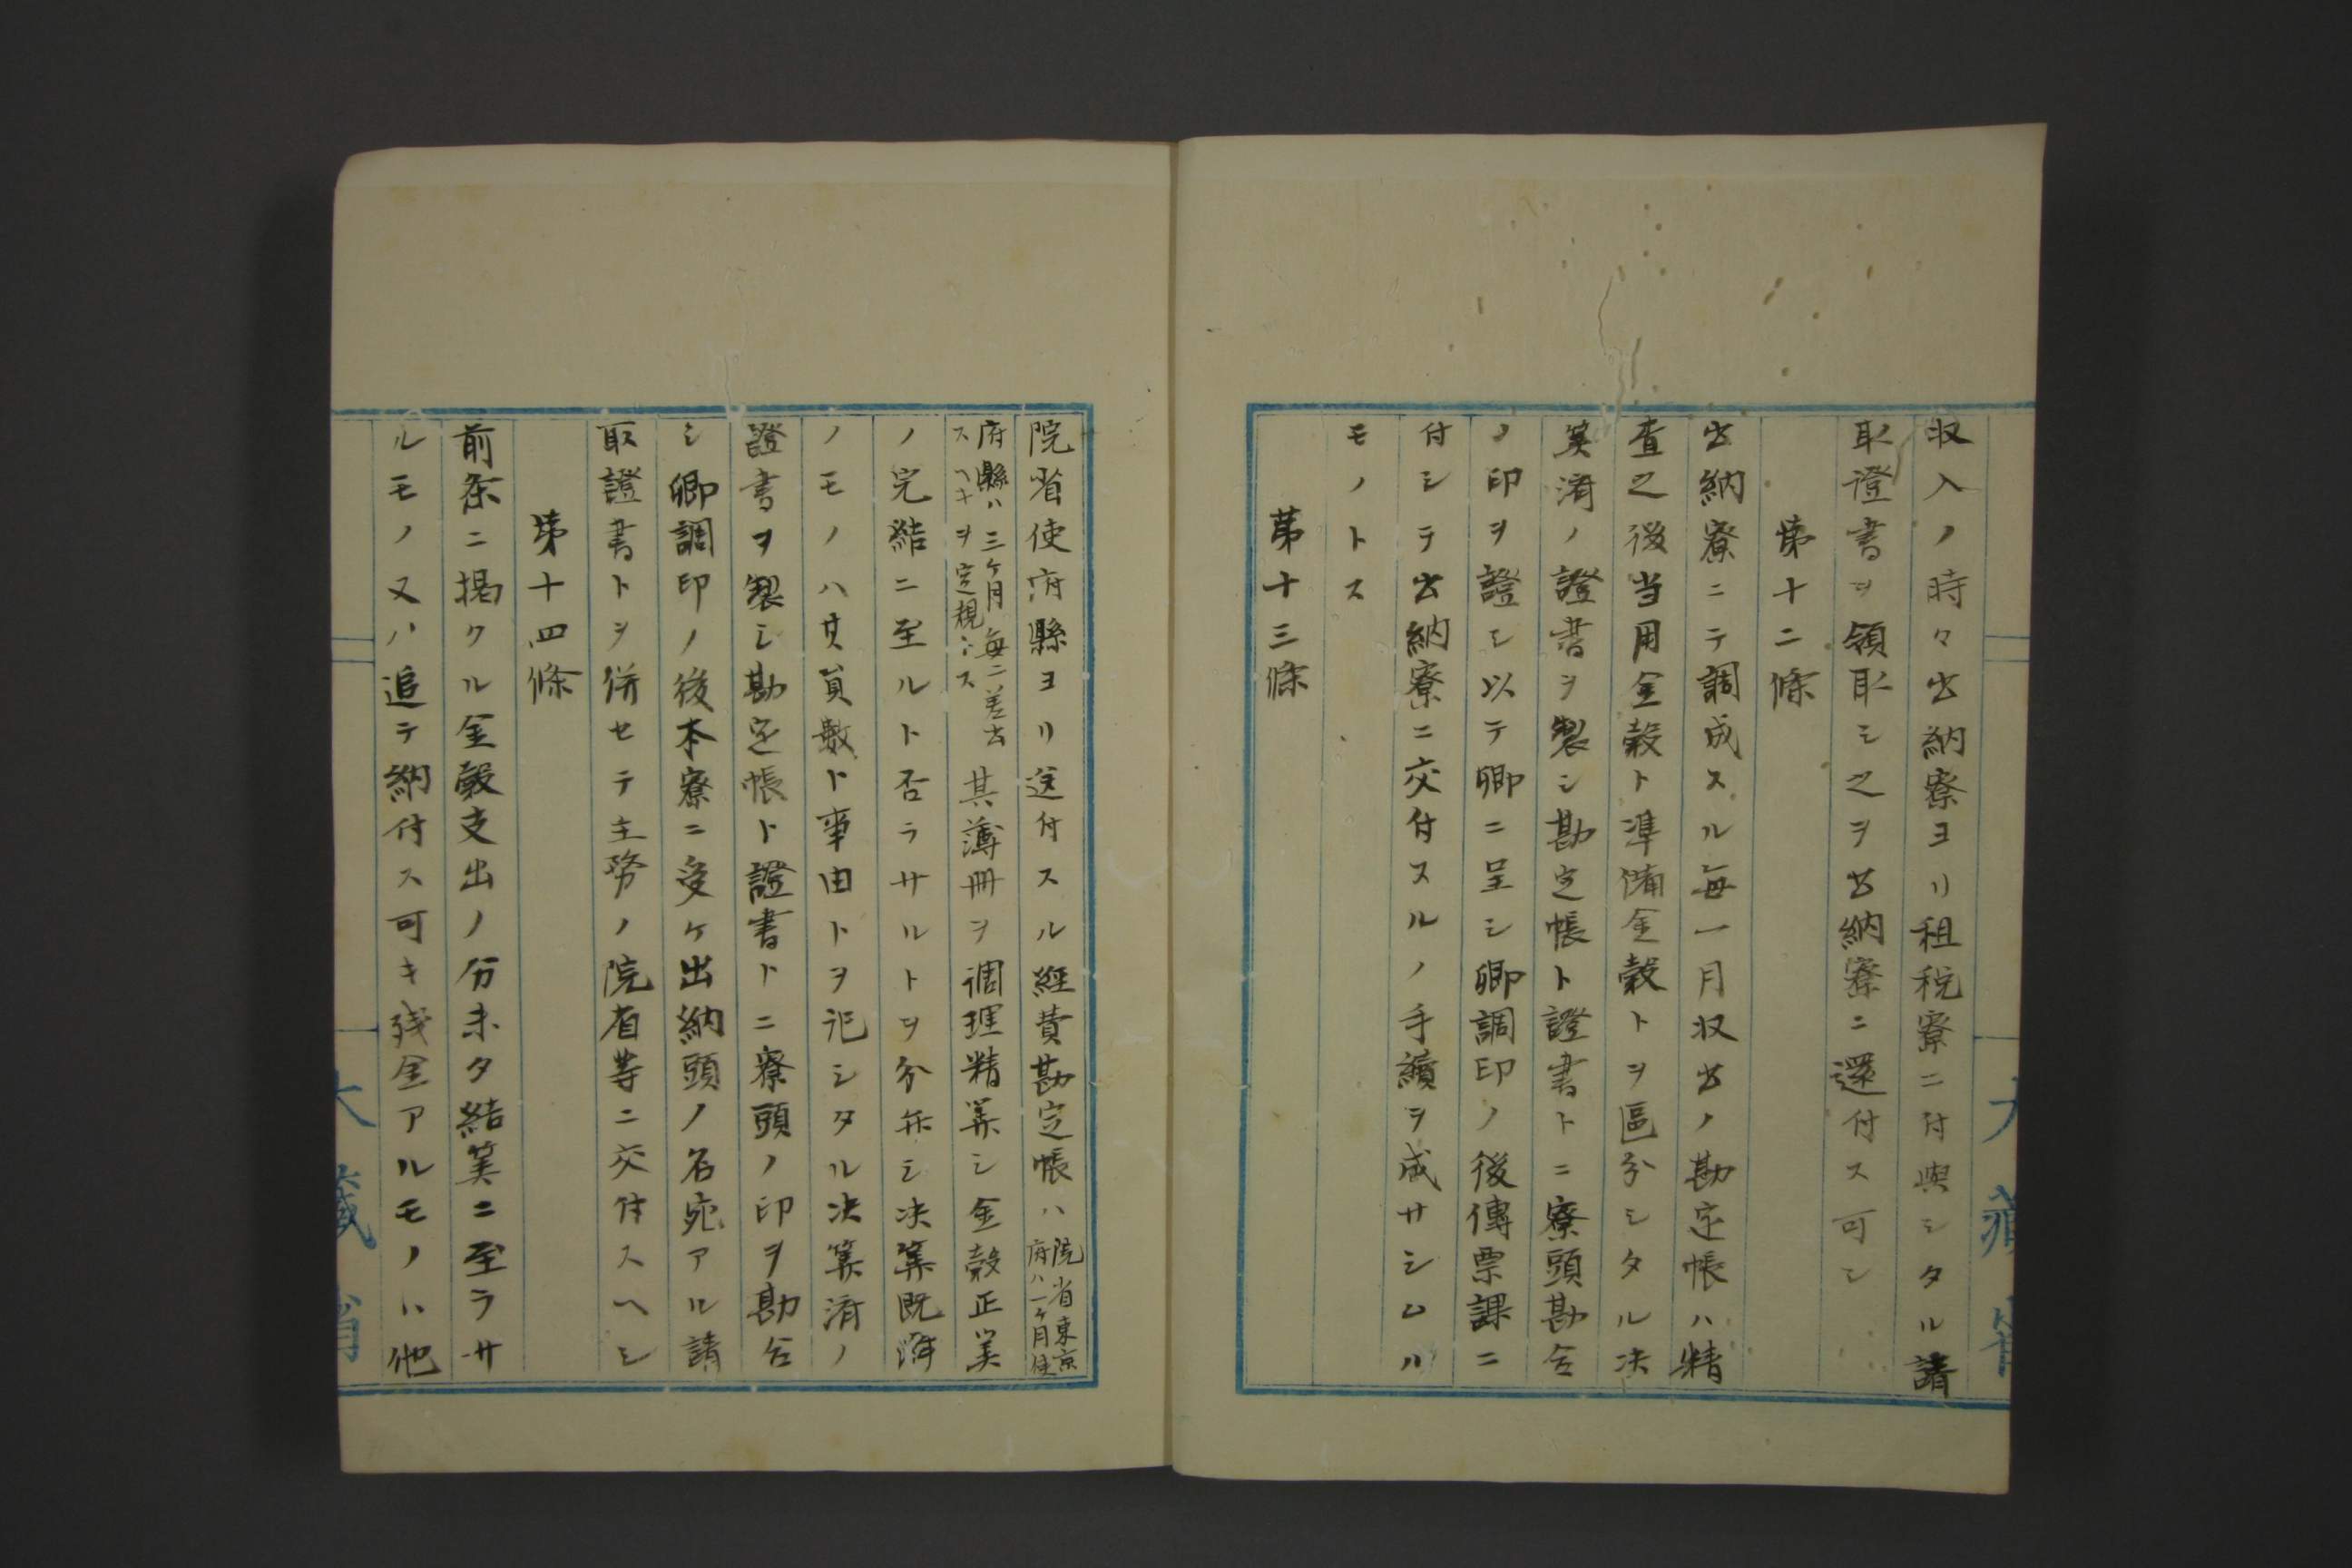 収入ノ時々出納寮ヨリ租税寮ニ付與シタル請
取證書ヲ領取シ之ヲ出納寮ニ還付ス可シ
第十二條
出納寮ニテ調成スル毎一月収出ノ勘定帳ハ精
査之後当用金穀ト準備金穀トヲ區分シタル决
筭済ノ證書ヲ製シ勘定帳ト證書トニ寮頭勘合
ノ印ヲ證シ以テ卿ニ呈シ卿調印ノ後傳票課ニ
付シテ出納寮ニ交付スルノ手續ヲ成サシムル
モノトス
第十三條
院省使府縣ヨリ送付スル經費勘定帳ハ院省東京
府ハ一ヶ月使
府縣ハ三ヶ月毎ニ差出
スヘキヲ定規トス其簿冊ヲ調理精筭シ金穀正筭
ノ完結ニ至ルト否ラサルトヲ分弁シ决筭既済
ノモノハ其員數ト事由トヲ記シタル决筭済ノ
證書ヲ製シ勘定帳ト證書トニ寮頭ノ印ヲ勘合
シ卿調印ノ後本寮ニ受ケ出納頭ノ名宛アル請
取證書トヲ併セテ主務ノ院省等ニ交付スヘシ
第十四條
前条ニ掲クル金穀支出ノ分未タ結筭ニ至ラサ
ルモノ又ハ追テ納付ス可キ残金アルモノハ他
大藏省